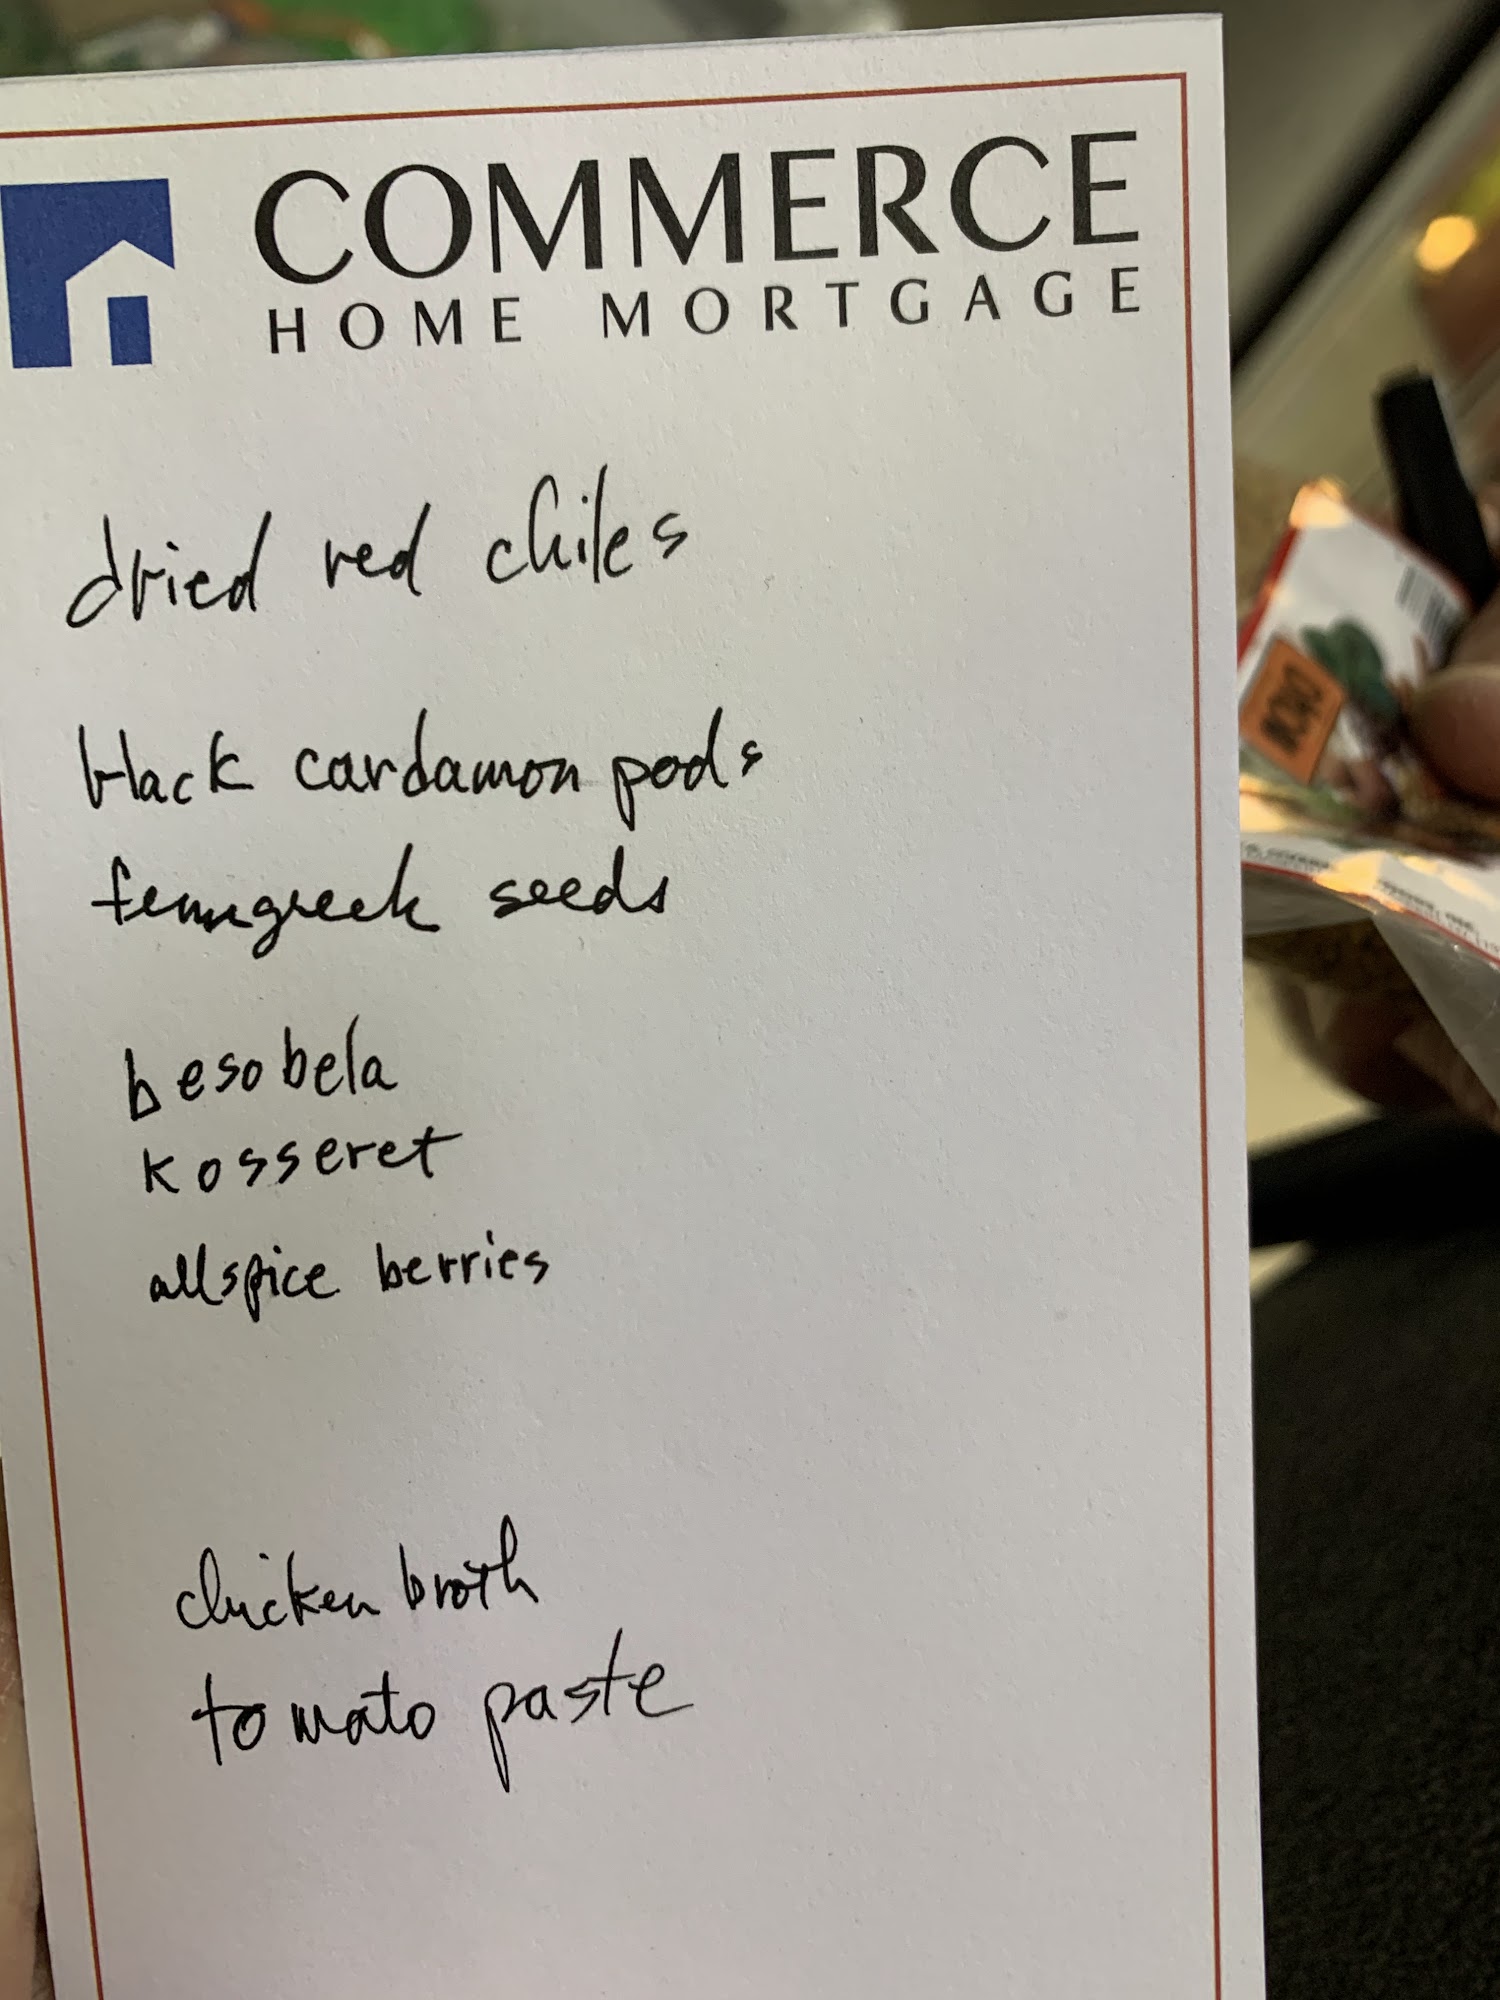 COMMERCE
HOME MORTGAGE
dried red chiles
black cardamon pods
fenugreek seeds
besobela
kosseret
allspice berries
chicken broth
tomato paste